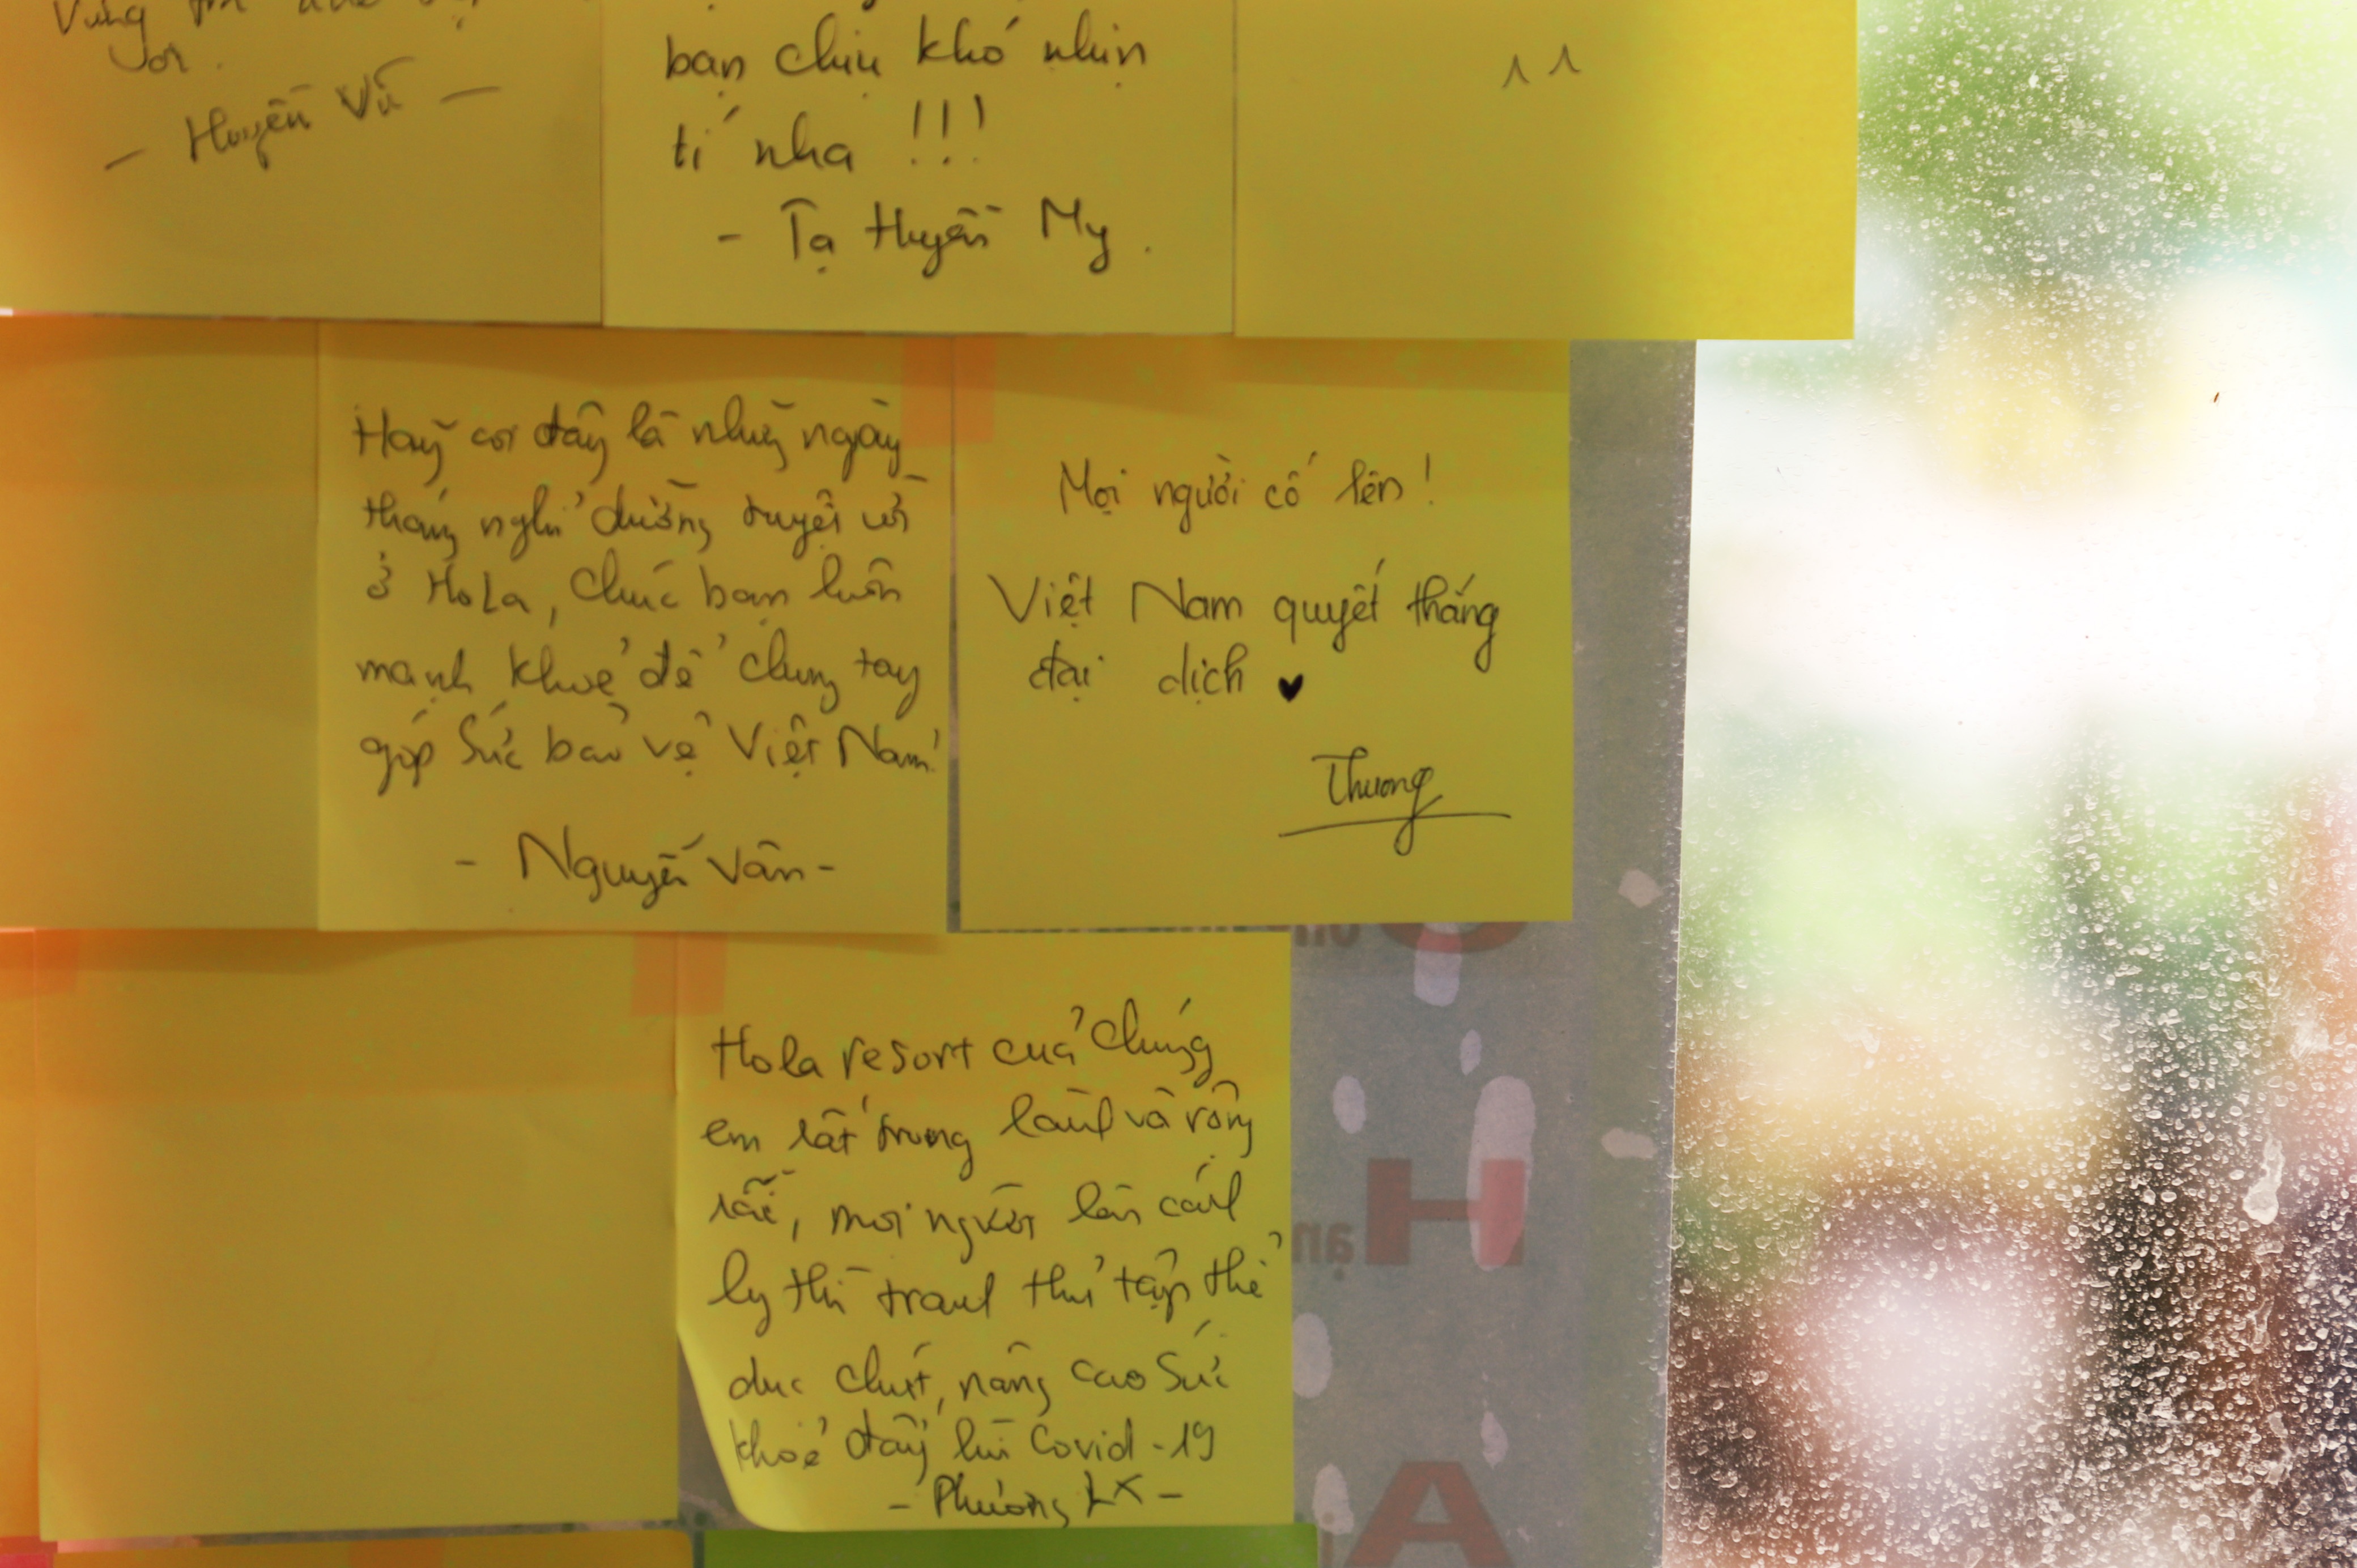 Vững
ơi.
- Huyền Vũ -
bạn chịu khó nhịn
tí nha !!!
- Tạ Huyền My.
^ ^
Hãy coi đây là những ngày
tháng nghỉ dưỡng tuyệt vời
ở HoLa, chúc bạn luôn
mạnh khoẻ để chung tay
góp sức bảo vệ Việt Nam!
- Nguyễn Vân -
Mọi người cố lên!
Việt Nam quyết thắng
đại dịch ♥
Thương
Hola resort của chúng
em rất trong lành và rộng
rãi, mọi người lên cách
ly thì tranh thủ tập thể
dục chút, nâng cao sức
khoẻ đẩy lùi Covid-19
- Phương LX -
H
ạn
A